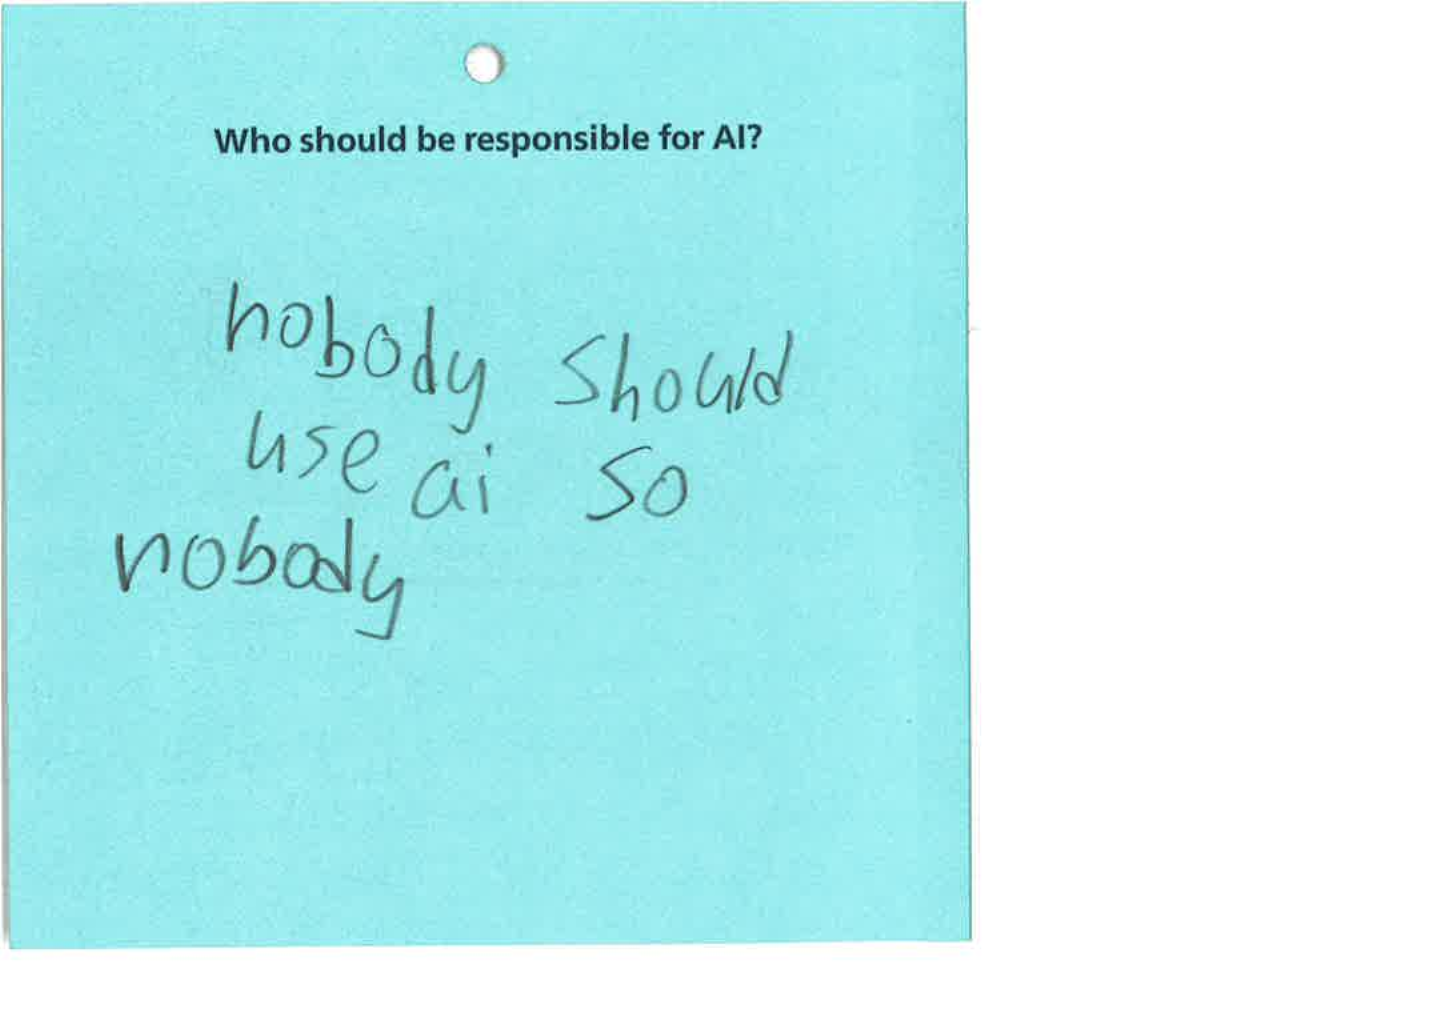 Who should be responsible for AI?
nobody should
use ai so
nobody